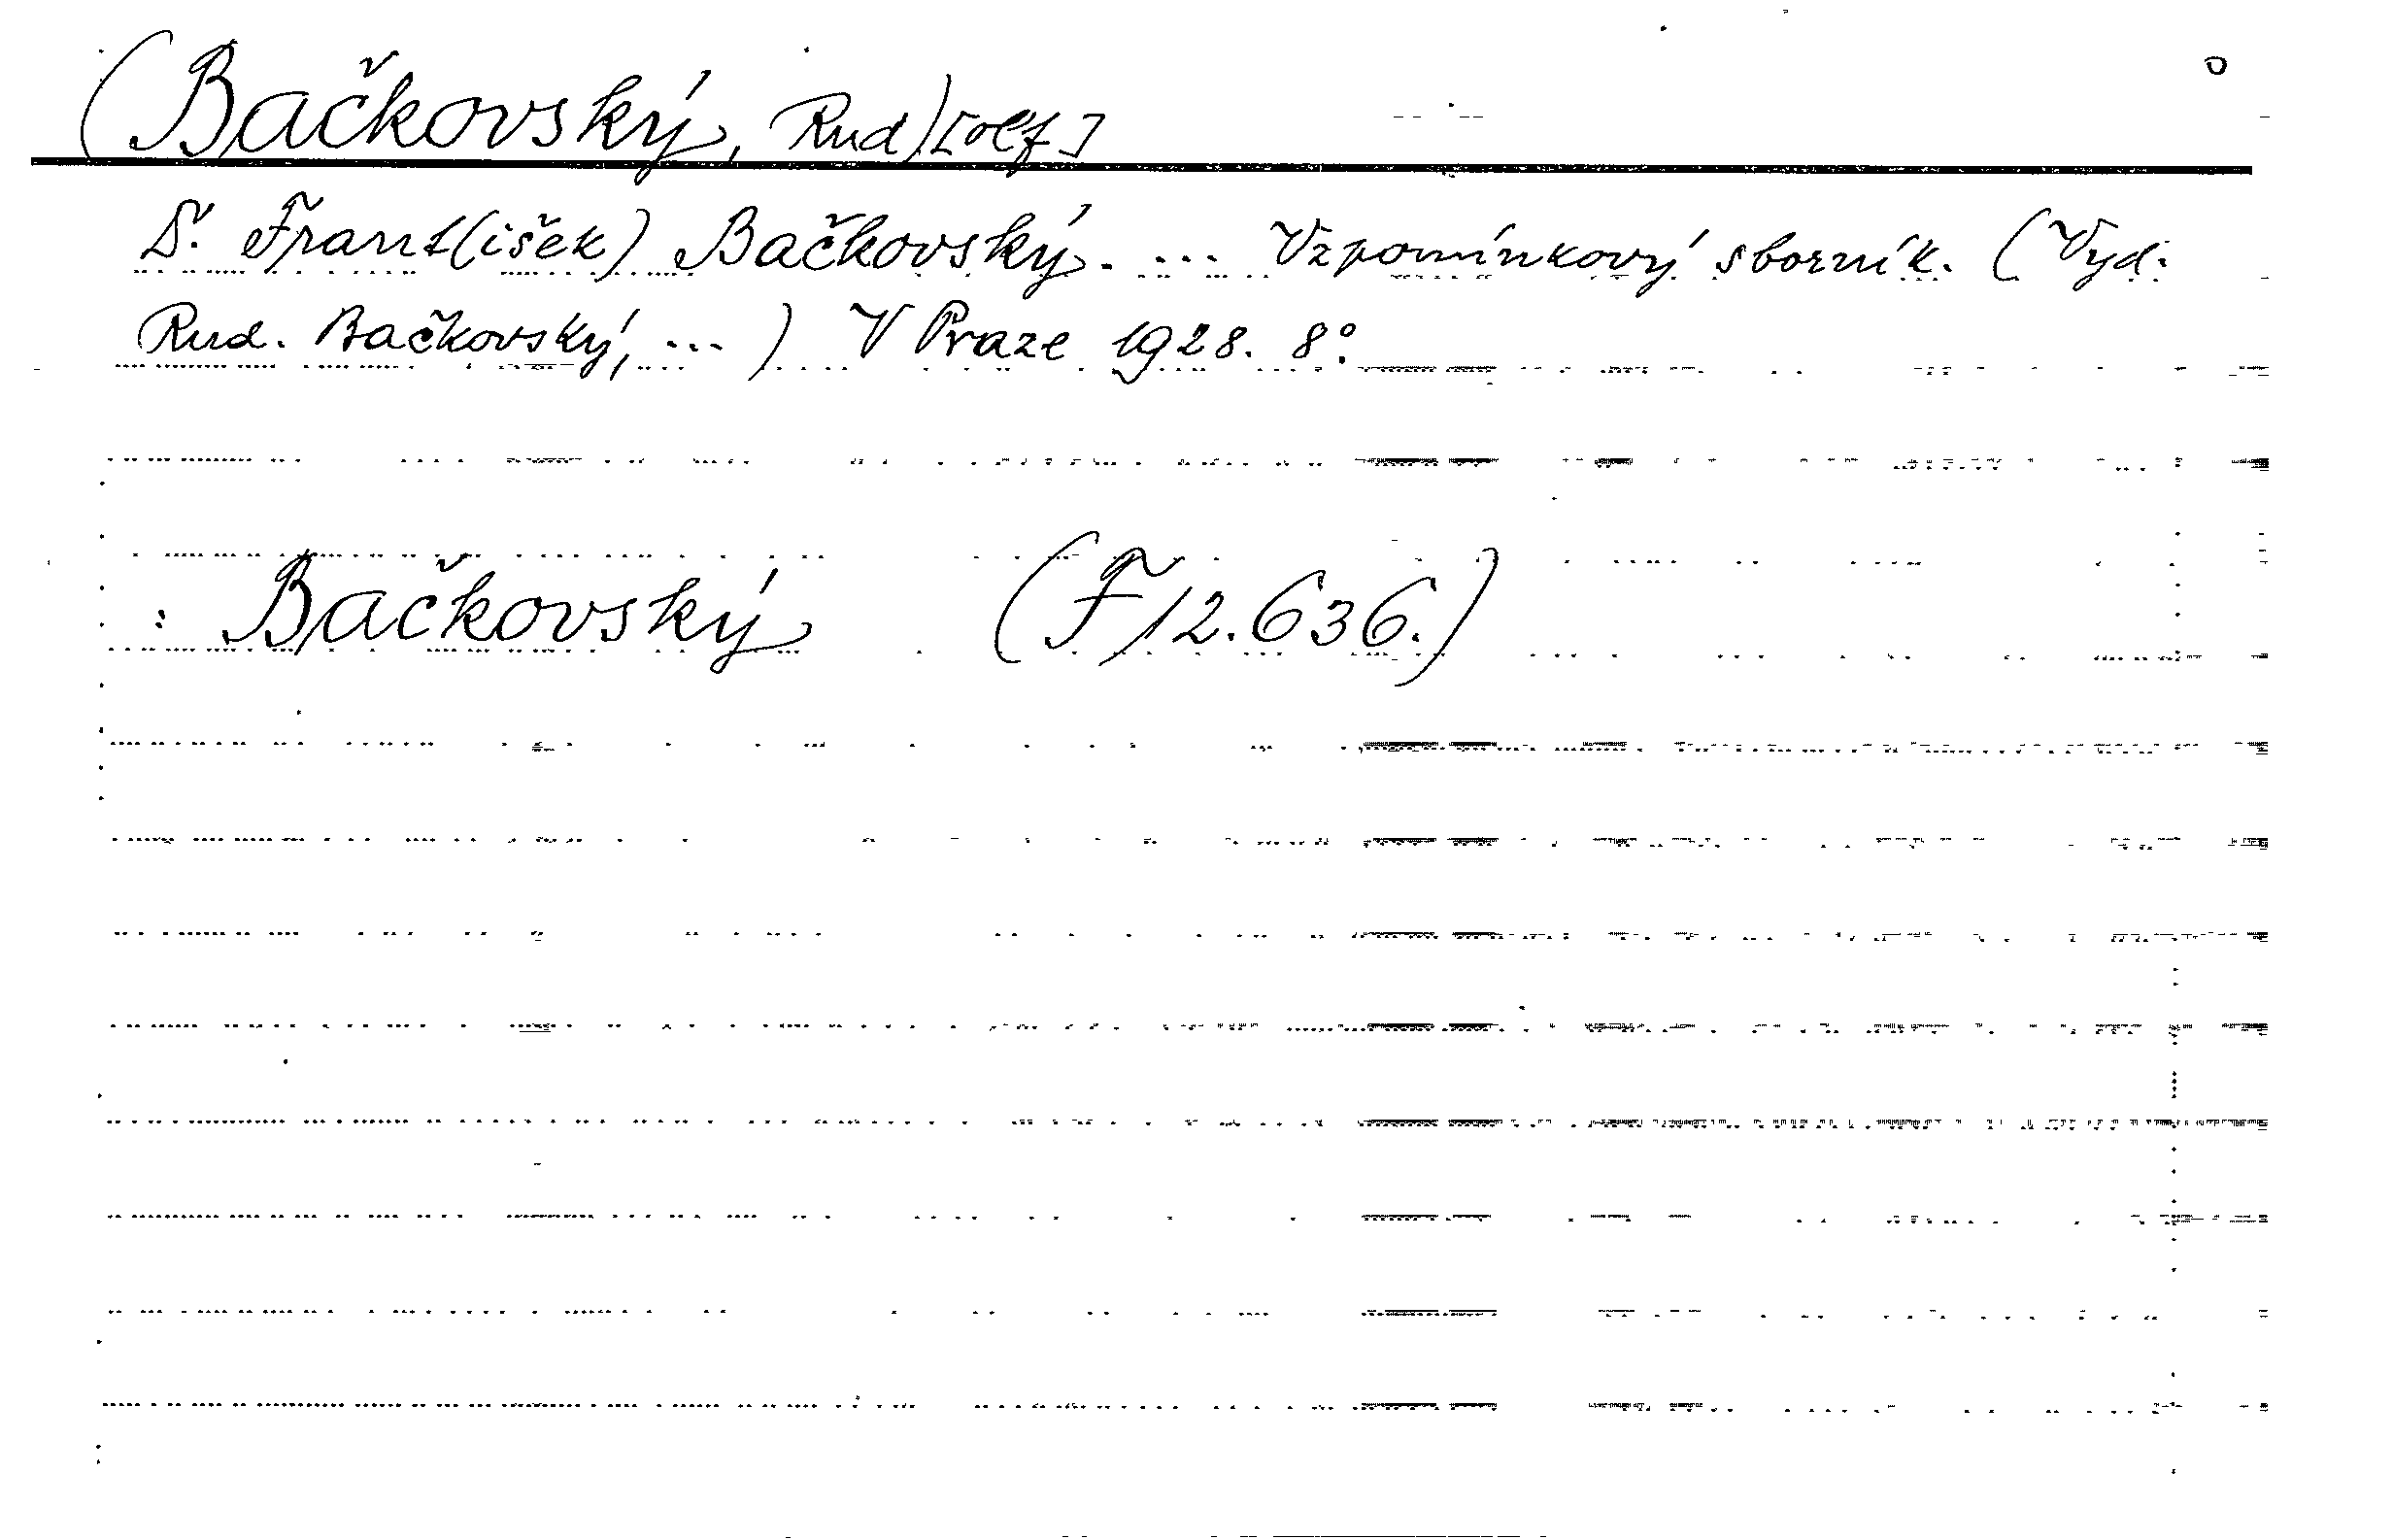 (Bačkovský, Rud)[olf]
Dr. Frant(išek) Bačkovský. ... Vzpomínkový sborník. (Vyd.
Rud. Bačkovský, ...) V Praze 1928. 8°.
: Bačkovský (F 12.636.)